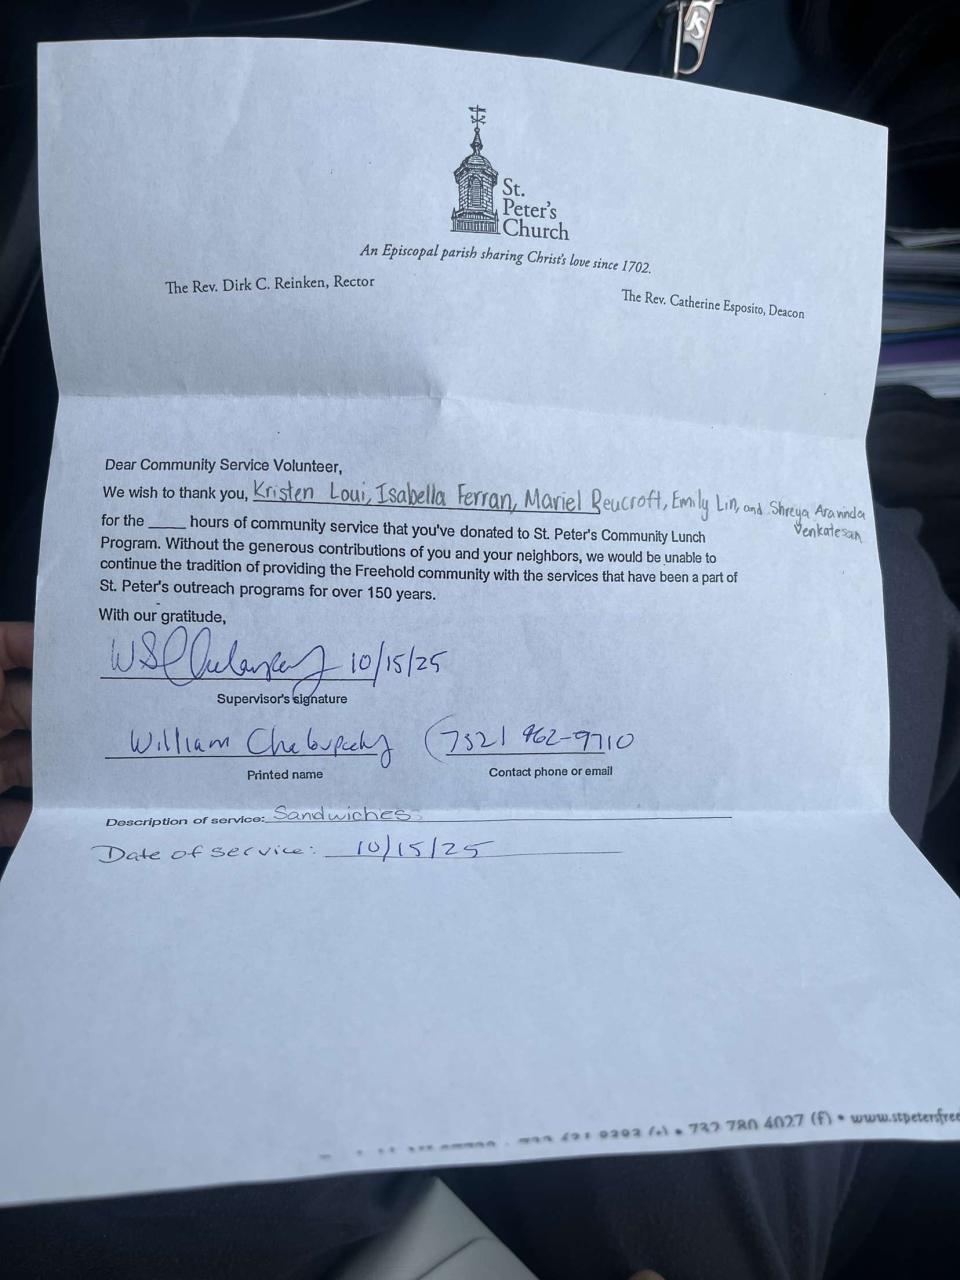 St.
Peter's
Church
An Episcopal parish sharing Christ's love since 1702.
The Rev. Dirk C. Reinken, Rector
The Rev. Catherine Esposito, Deacon
Dear Community Service Volunteer,
We wish to thank you, Kristen Loui, Isabella Ferran, Mariel Beucroft, Emily Lin, and Shreya Aravinda
Venkatesan
for the ____ hours of community service that you've donated to St. Peter's Community Lunch
Program. Without the generous contributions of you and your neighbors, we would be unable to
continue the tradition of providing the Freehold community with the services that have been a part of
St. Peter's outreach programs for over 150 years.
With our gratitude,
10/15/25
Supervisor's signature
William (732) 962-9710
Printed name
Contact phone or email
Description of service: Sandwiches
Date of service: 10/15/25
732 780 4027 (f) • www.stpetersfree